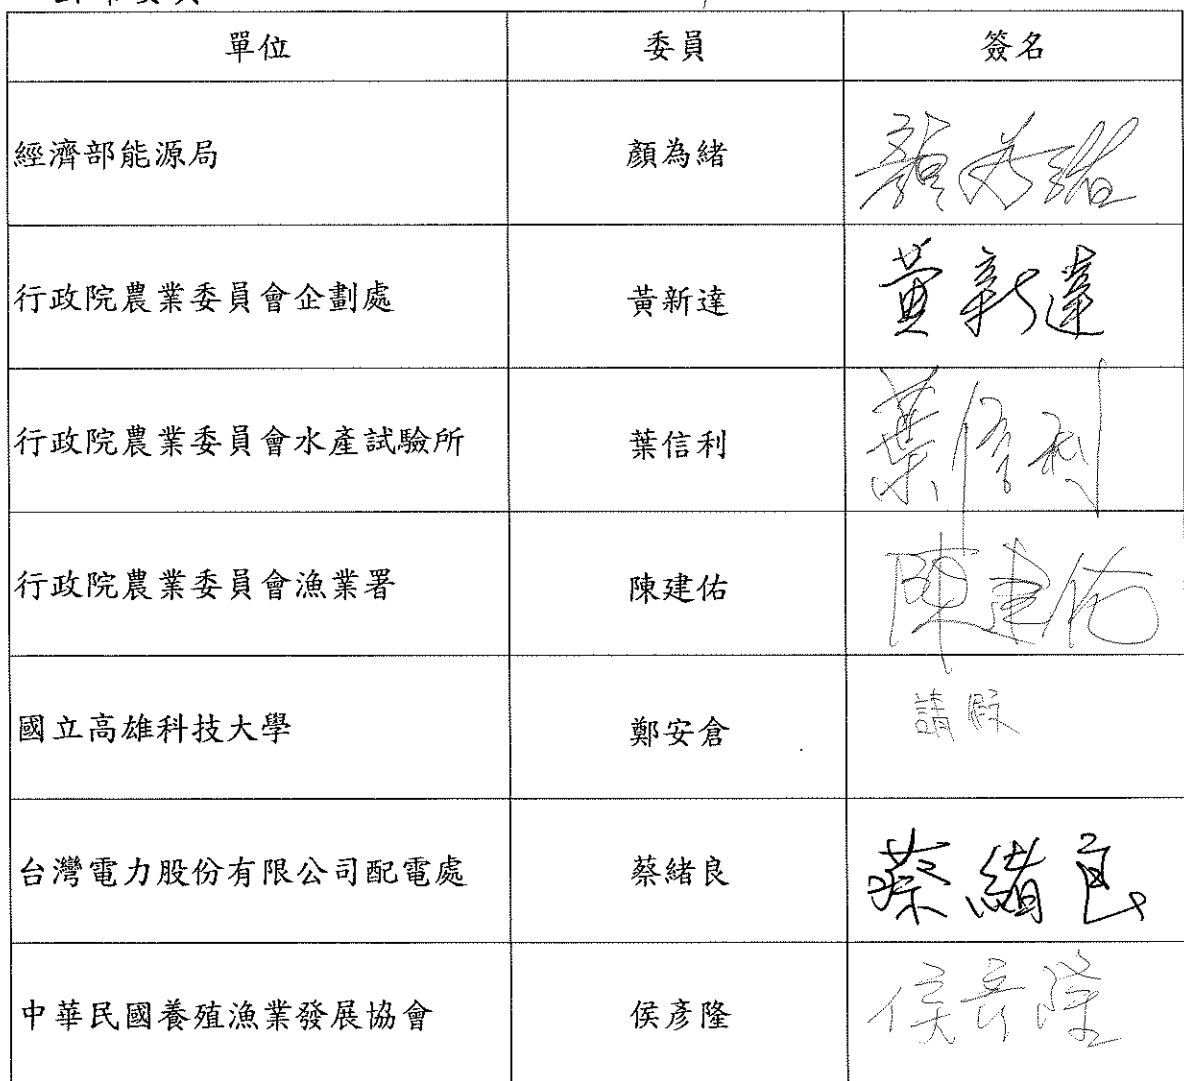 單位 委員 簽名
經濟部能源局 顏為緒 顏為緒
行政院農業委員會企劃處 黃新達 黃新達
行政院農業委員會水產試驗所 葉信利 葉信利
行政院農業委員會漁業署 陳建佑 陳建佑
國立高雄科技大學 鄭安倉 請假
台灣電力股份有限公司配電處 蔡緒良 蔡緒良
中華民國養殖漁業發展協會 侯彥隆 侯彥隆